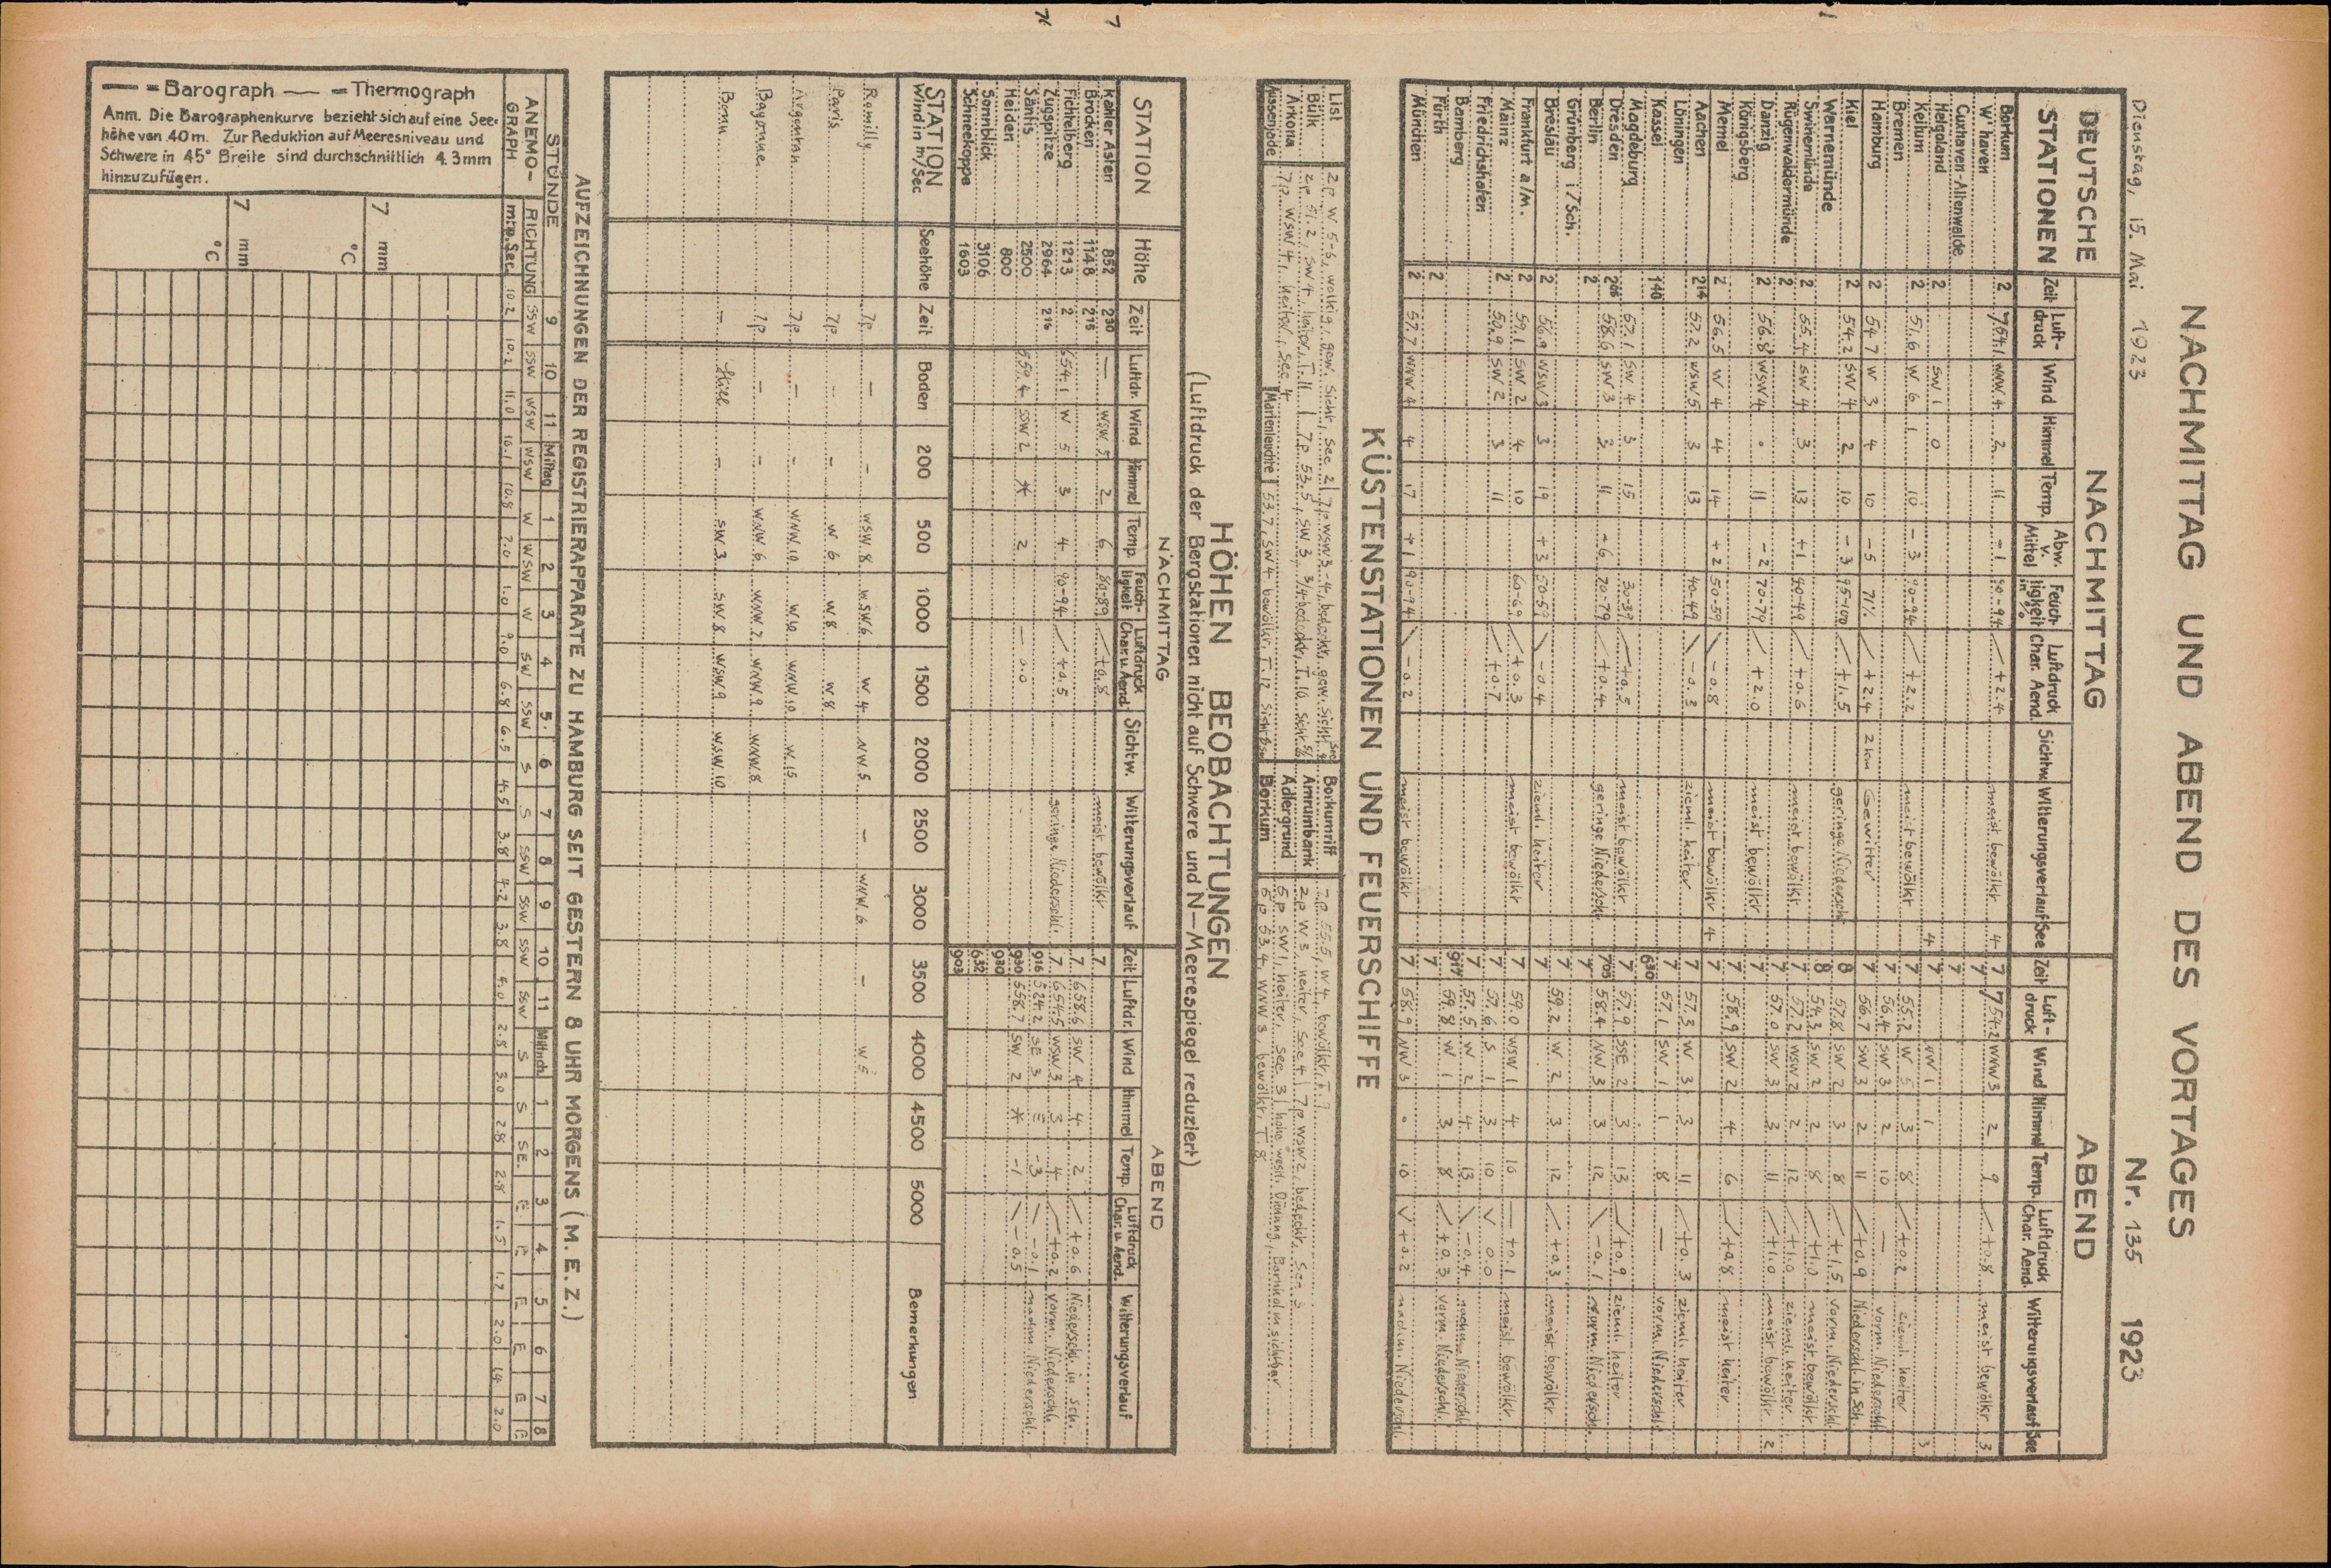 NACHMITTAG UND ABEND DES VORTAGES
Dienstag, 15. Mai 1923 Nr. 135 1923
DEUTSCHE STATIONEN NACHMITTAG ABEND
Zeit Luft-druck Wind Himmel Temp. Abw. v. Mittel Feuch-ligkeit in % Luftdruck Char. Aend. Sichtw. Witterungsverlauf See Zeit Luft-druck Wind Himmel Temp. Luftdruck Char. Aend. Witterungsverlauf See
Borkum 2 754.1 WNW 4 2 11 -1 90-94 / +2.4 meist bewölkt 4 7 754.2 WNW 3 2 9 / +0.8 meist bewölkt 3
W'haven 7
Cuxhaven-Altenwalde 7
Helgoland 2 SW 1 0 4 7 NW 1 1
Keitum 2 51.6 W 6 1 10 -3 90-94 / +2.2 meist bewölkt 7 55.2 W 5 3 8 / +0.2 zieml. heiter 3
Bremen 7 56.4 SW 3 2 10 — vorm. Niederschl.
Hamburg 2 54.7 W 3 4 10 -5 71% / +2.4 2km Gewitter 7 56.7 SW 3 2 11 / +0.9 Niederschl. in Sch.
Kiel 2 54.2 SW 4 2 10 -3 95-100 / +1.5 geringe Niedersch. 8 57.8 SW 2 3 8 / +1.5 vorm. Niederschl.
Warnemünde 8 54.3 SW 2 2 8 / +1.0 meist bewölkt
Swinemünde 2 55.4 SW 4 3 13 +1 40-49 / +0.6 meist bewölkt 7 57.2 WSW 2 2 12 / +1.0 ziemi. heiter
Rügenwaldermünde 2 7 57.0 SW 3 3 11 / +1.0 meist bewölkt 2
Danzig 2 56.8 WSW 4 11 -2 70-79 / +2.0 meist bewölkt 7
Königsberg 7 58.9 SW 2 4 6 / +0.8 meist heiter
Memel 2 56.5 W 4 4 14 +2 50-59 \ -0.8 meist bewölkt 4 7
Aachen 2¹⁴ 57.2 WSW 5 3 13 40-49 \ -0.3 ziemi. heiter 7 57.3 W 3 3 11 / +0.3 ziemi. heiter
Löningen 7 57.1 SW 1 1 8 — vorm. Niederschl.
Kassel 1⁴⁰ 6³⁰
Magdeburg 57.1 SW 4 3 15 30-39 / +0.5 meist bewölkt 7 57.9 SSE 2 3 13 / +0.9 ziemi. heiter
Dresden 2⁰⁵ 58.6 SW 3 2 11 -6 70-79 / +0.4 geringe Niederschl. 7⁰⁵ 58.4 NW 3 3 12 \ -0.1 Vorm. Niederschl.
Berlin 2 7
Grünberg i/Sch. 7
Breslau 2 56.9 WSW 3 3 19 +3 50-59 \ -0.4 ziemi. heiter 7 59.2 W 2 3 12 / +0.3 meist bewölkt
Frankfurt a/M. 2 59.1 SW 2 4 10 60-69 / +0.3 meist bewölkt 7 59.0 WSW 1 4 10 — +0.1 meist bewölkt
Mainz 2 50.9 SW 2 3 11 / +0.7 7 57.6 S 1 3 10 V 0.0
Friedrichshafen 7 57.5 W 2 4 13 \ -0.4 nachm. Niederschl.
Bamberg 9¹⁷ 59.8 W 1 3 8 / +0.3 Vorm. Niederschl.
Fürth 2 7
München 2 57.7 WNW 4 4 17 +1 90-94 \ -0.2 meist bewölkt 7 58.9 NW 3 10 V +0.2 nachm. Niedersch.
KÜSTENSTATIONEN UND FEUERSCHIFFE
List 2p W 5-6, wolkig, gew. Sicht, See 2 | 7p WSW 3-4, bedeckt, gew. Sicht, See Borkumriff 2p 55.5, W 4, bewölkt, T. 7
Bülk 2p 51.2, SW 4, heiter, T. 11 | 7p 53.5, SW 3, 3/4 bedeckt, T. 10 Sicht Amrumbank 2p W 3, heiter, See 4 | 7p WSW 2, bedeckt, See 3
Arkona 7p WSW 4, heiter, See 4 Adlergrund 5p SW 1, heiter, See 3 | hohe westl. Dünung, Bornholm sichtbar
Aussenjade Marienleuchte | 53.7, SW 4 bewölkt, T. 12 Sicht Borkum 6p 53.4, WNW 3, bewölkt, T. 8
HÖHEN BEOBACHTUNGEN
(Luftdruck der Bergstationen nicht auf Schwere und N—Meerespiegel reduziert)
STATION Höhe NACHMITTAG ABEND
Zeit Luftdr. Wind Himmel Temp. Feuch-ligkeit Luftdruck Char. u. Aend. Sichtw. Witterungsverlauf Zeit Luftdr. Wind Himmel Temp. Luftdruck Char. u. Aend. Witterungsverlauf
Kahler Asten 852 2³⁰ — WSW 5 2 6 80-89 / +0.8 meist bewölkt 7
Brocken 1148 2¹⁵ 7 658.6 SW 4 4 2 / +0.6 Niederschl. in Sch.
Fichtelberg 1213 2 654.1 W 5 3 4 90-94 / +0.5 geringe Niederschl. 7 654.5 WSW 3 3 4 / +0.2 Vorm. Niederschl.
Zugspitze 2964 2¹⁵ 9¹⁶ 524.2 SE 3 -3 — -0.1 nachm. Niederschl.
Säntis 2500 559.4 SSW 2 * 2 — 0.0 9³⁰ 558.7 SW 2 * -1 \ -0.5
Heiden 800 9³⁰
Sonnblick 3106 6³²
Schneekoppe 1603 9⁰³
STATION Wind in m/Sec Seehöhe Zeit Boden 200 500 1000 1500 2000 2500 3000 3500 4000 4500 5000 Bemerkungen
Romilly 7p. — — WSW. 8 WSW 6 W 4 NW. 5 — WNW. 6 — W 5
Paris 7p. — — W 6 W 8 W 8
Argentan 7p. — — WNW. 10 W. 10 WNW. 10 W. 15
Bayonne 7p. — — WNW 6 WNW. 7 WNW. 9 WNW. 8
Bonn — Still — SW. 3 SW. 8 WSW. 9 WSW. 10
AUFZEICHNUNGEN DER REGISTRIERAPPARATE ZU HAMBURG SEIT GESTERN 8 UHR MORGENS (M. E. Z.)
STUNDE 9 10 11 Mittag 1 2 3 4 5. 6 7 8 9 10 11 Mittnch 1 2 3 4 5 6 7 8
ANEMO-GRAPH RICHTUNG SSW SSW WSW WSW W WSW W SW SSW S S SSW SSW SSW SSW S S SE. E E E E E E
mtr. p. Sec. 10.2 10.2 11.0 10.1 10.8 7.0 1.0 9.0 6.8 6.5 4.5 3.8 4.2 3.8 4.0 2.8 3.0 2.8 2.8 1.5 1.2 2.0 1.4 2.0
7 mm
°C
7 mm
°C
— = Barograph — = Thermograph
Anm. Die Barographenkurve bezieht sich auf eine See-
höhe von 40 m. Zur Reduktion auf Meeresniveau und
Schwere in 45° Breite sind durchschnittlich 4.3 mm
hinzuzufügen.